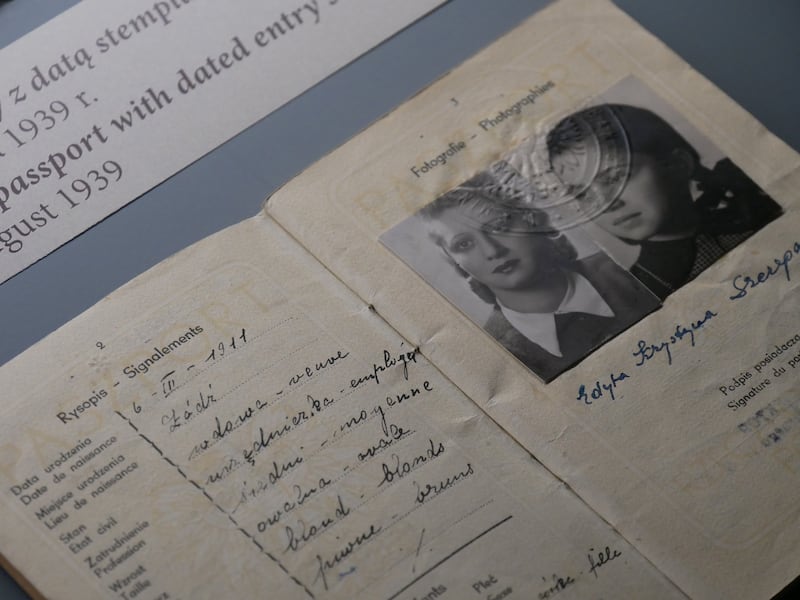 z datą stempla
1939 r.
passport with dated entry
gust 1939
2
Rysopis - Signalements
Data urodzenia
Date de naissance
6 - III - 1911
Miejsce urodzenia
Lieu de naissance
Łódź
Stan
Etat civil
wdowa - veuve
Zatrudnienie
Profession
urzędniczka - employée
Wzrost
Taille
średni - moyenne
owalna - ovale
blond - blonds
piwne - bruns
Płeć
fille
3
Fotografie - Photographies
Edyta Krystyna
Podpis posiadacza
Signature du